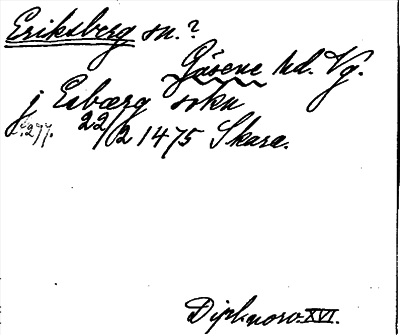 Eriksberg sn.?
Gäsene hd. Vg.
j Esbærg sokn
f. 277. 22/2 1475 Skara.
Dipl. norv. XVI.